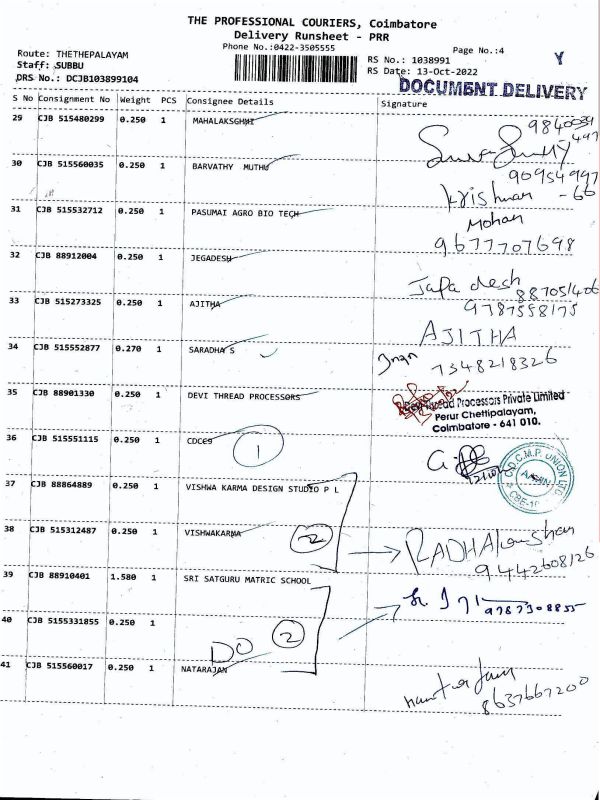 THE PROFESSIONAL COURIERS, Coimbatore
Delivery Runsheet - PRR
Phone No.:0422-3505555
Page No.:4
Route: THETHEPALAYAM
Staff: SUBBU
DRS No.: DCJB103899104
RS No.: 1038991
RS Date: 13-Oct-2022
Y
DOCUMENT DELIVERY
S No Consignment No Weight PCS Consignee Details Signature
29 CJB 515480299 0.250 1 MAHALAKSGHMI
9840039
497
30 CJB 515560035 0.250 1 BARVATHY MUTHU
90954997
Krishnan - 66
31 CJB 515532712 0.250 1 PASUMAI AGRO BIO TECH
Mohan
9677707698
32 CJB 88912004 0.250 1 JEGADESH
Jaga desh
887051406
33 CJB 515273325 0.250 1 AJITHA
9787558175
AJITHA
34 CJB 515552877 0.270 1 SARADHA S
7348218326
35 CJB 88901330 0.250 1 DEVI THREAD PROCESSORS
Processors Private Limited
Perur Chettipalayam,
Coimbatore - 641 010.
36 CJB 515551115 0.250 1 CDCC9
1
C.D.C.M.P. UNION LTD.
37 CJB 88864889 0.250 1 VISHWA KARMA DESIGN STUDIO P L
38 CJB 515312487 0.250 1 VISHWAKARMA
2
RADHAkrishnan
9442608126
39 CJB 88910401 1.580 1 SRI SATGURU MATRIC SCHOOL
9787308855
40 CJB 5155331855 0.250 1
DO 2
41 CJB 515560017 0.250 1 NATARAJAN
8637667200